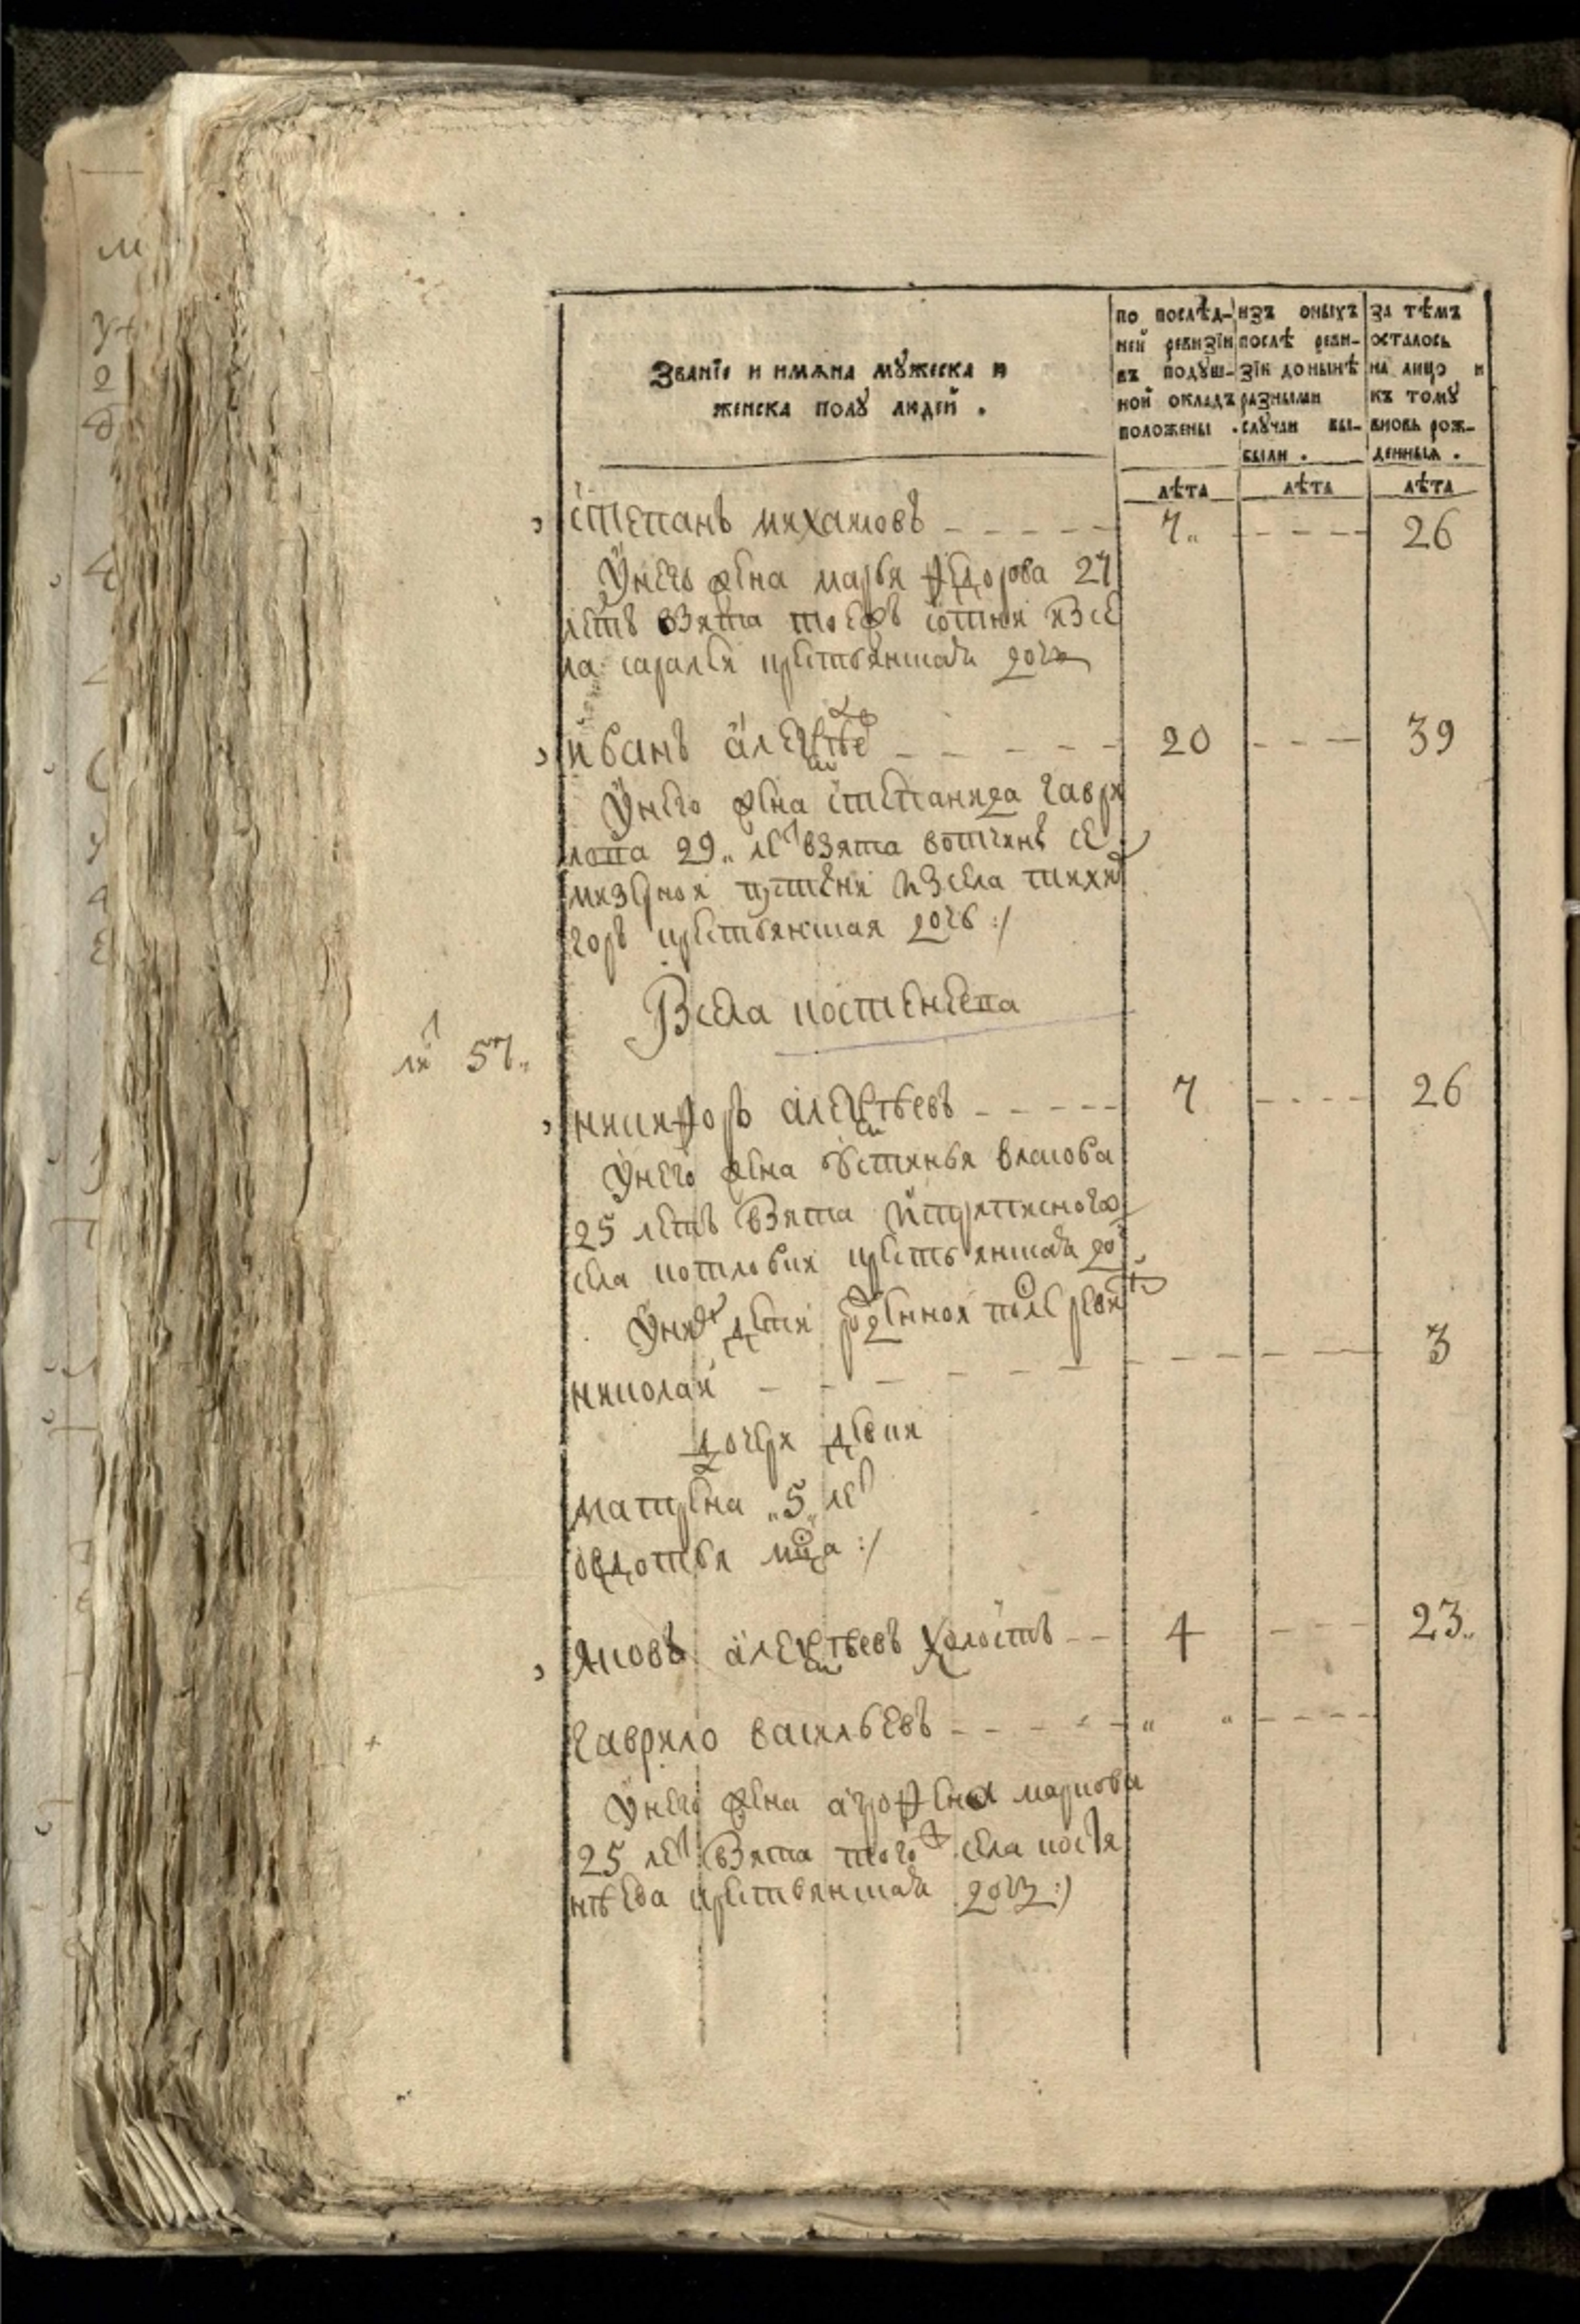 Званїе и имѧна мꙋжеска и
женска полꙋ людей .
по послѣд-
ней ревизїи
въ подꙋш-
ной окладъ
положены .
изъ оныхъ
послѣ реви-
зїи до нынѣ
разными
слꙋчаи вы-
были .
за тѣмъ
осталось
на лицо и
къ тому
вновь рож-
денныя .
лѣта лѣта лѣта
степанъ михаиловъ 7 26
У него жена марья федорова 27
летъ взята тоежъ сотни изсе
ла крестьянская дочь
иванъ алексеевъ 20 39
У него жена степанида гаври
лова 29 лет взята вотчинѣ се
пустыни изсела
горъ крестьянская дочь :/
Всела
ли 57
никифоръ алексеевъ 7 26
У него жена устинья власова
25 летъ взята приписного
села котловки крестьянская до
У них дети рожденной после реви
николай 3
дочери девки
матрена 5 лет
овдотья :/
яковъ алексеевъ холостъ 4 23
гаврило васильевъ
У него жена агрофена маркова
25 лет взята того ж села
крестьянская дочь :/